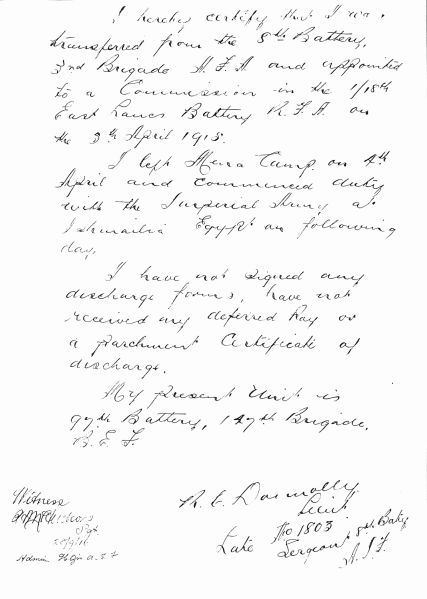 I hereby certify that I was
transferred from the 8th Battery,
3rd Brigade A.F.A and appointed
to a Commission in the 1/18th
East Lancs Battery R.F.A. on
the 3rd April 1915.
I left Mena Camp on 4th
April and commenced duty
with the Imperial Army at
Ishmailia Egypt on following
day,
I have not signed any
discharge forms, have not
received any deferred Pay or
a parchment Certificate of
discharge.
My present Unit is
97th Battery, 147th Brigade.
B.E.F.
R. E. Donnolly
Lieut
Late No 1803
Sergeant 8th Baty
A.I.F
Witness
Sgt
Admin Hdqrs A.I.F